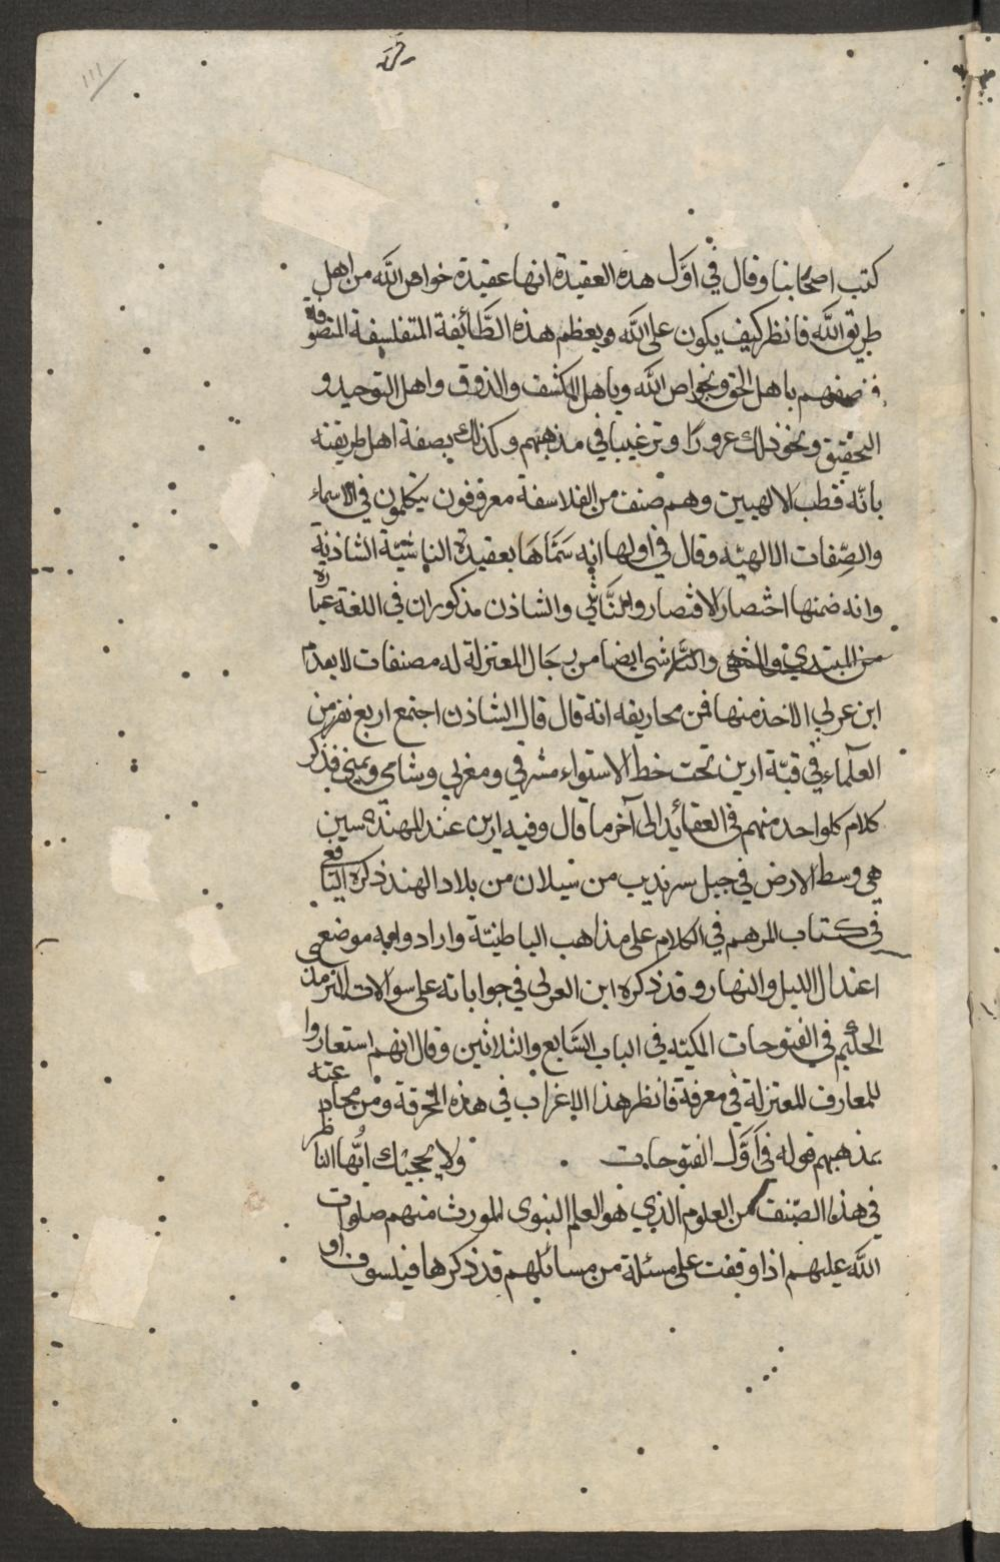 كتب اصحابنا وقال في اوَّل هذه العقيدة انها عقيدة خواص الله من اهل
طريق الله فانظر كيف يكون على الله ويعظم هذه الطَّائفة المتفلسفة المتصوفة
فيصفهم باهل الحق وبخواص الله وباهل الكشف والذوق واهل التوحيد و
التحقيق ونحو ذلك غرورًا وترغيبا في مذهبهم وكذلك يصفة اهل طريقته
بانّه قطب الالهيين وهم صنف من الفلاسفة معروفون يتكلمون في الاسماء
والصِّفات الالهيّه وقال في اولها انه سَمَّاهَا بعقيدة الناشيّة الشاذنيّة
وانه ضمنها اختصار الاقتصار والنَّاشي والشاذن مذكوران في اللغة عبارة
من المبتدي والناشى ايضا من رجَال المعتزلة له مصنفات لا يبعد
ابن عربي الاخذ منها فمن مخاريقه انه قال قال الشاذن اجتمع اربع نفر من
العلماء في قبّة ارين تحت خط الاستواء مشرقي ومغربي وشامي ويمني فذكر
كلام كلواحد منهم في العقائد الى آخر ما قال وفيه ارين عند المهندسين
هي وسط الارض في جبل سرنديب من سيلان من بلاد الهند ذكره اليافعي
في كتاب المرهم في الكلام على مذاهب الباطنيّة وارادوا به موضع
اعتدال الليل والنهار وقد ذكره ابن العربي في جواباته على سوالات الترمذي
الحكيم في الفتوحات المكيّه في الباب السَّابع والثلاثين وقال انهم استعاروا
للمعارف للمعتزلة في معرفة فانظر هذا الاغراب في هذه المخرقة ومن مخادعته
بمذهبهم قوله في اَوَّل الفتوحات ولا يحجبنك ايُّها الناظر
في هذا الصّنف من العلوم الذي هو العلم النبوى الموروث منهم صلوات
الله عليهم اذا وقفت على مسئلة من مسائلهم قد ذكرها فيلسوف او